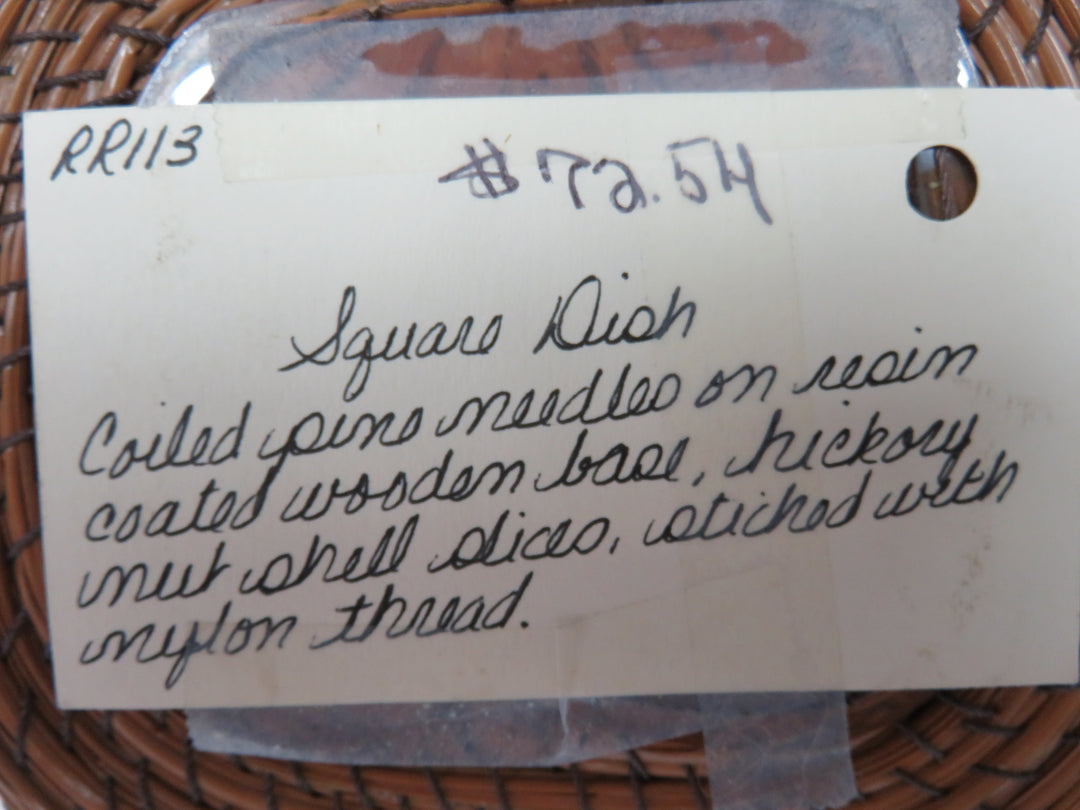 RR113
$72.54
Square Dish
Coiled pine needles on resin
coated wooden base, hickory
nut shell slices, stiched with
nylon thread.